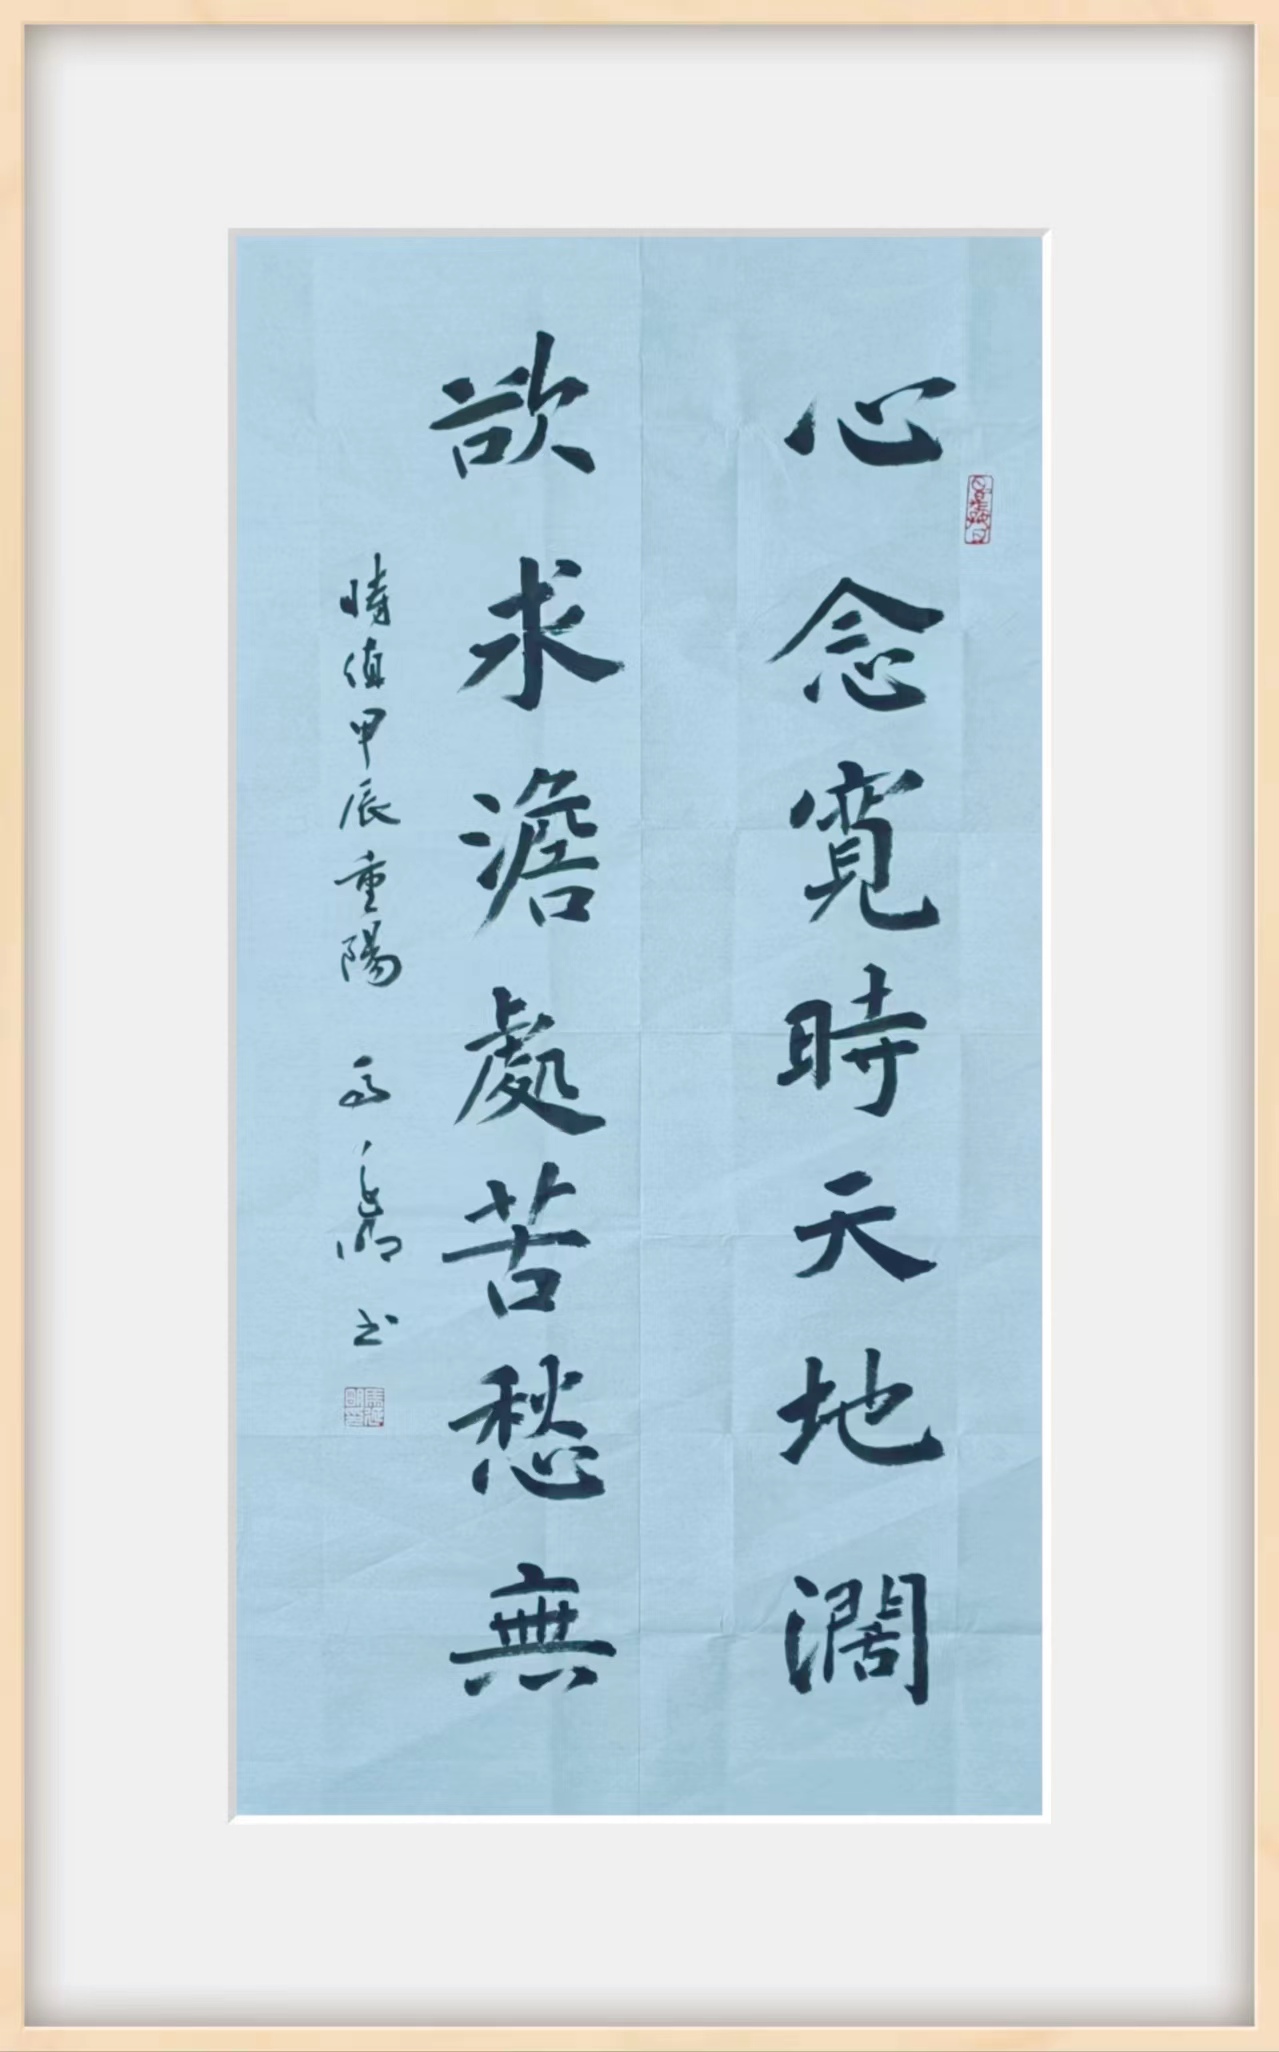 心念寬時天地濶
欲求澹處苦愁無
時值甲辰重陽 書